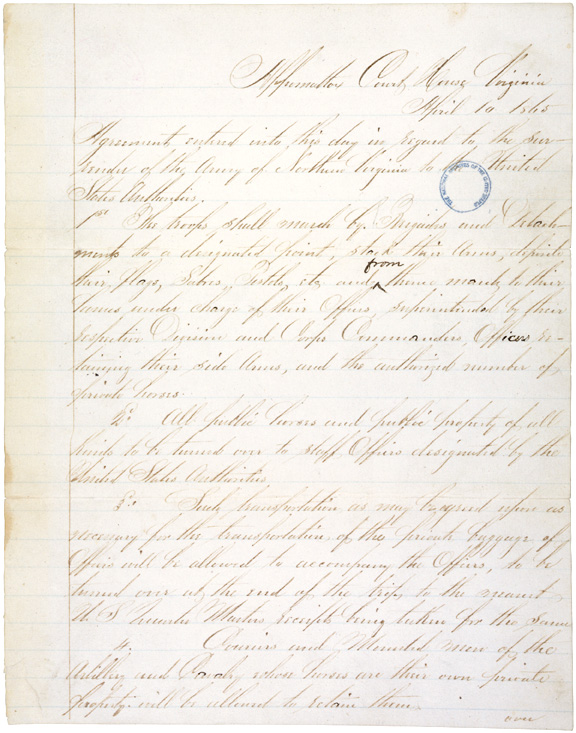 Appomattox Court House Virginia
April 10 1865
Agreement entered into this day in regard to the sur-
render of the Army of Northern Virginia to the United
States Authorities.
1st The troops shall march by Brigades and Detach-
ments to a designated point, stack their Arms, deposit
their flags, Sabres, Pistols, etc. and from thence march to their
homes under charge of their Officers, superintended by their
respective Division and Corps Commanders, Officers re-
taining their side Arms, and the authorized number of
private horses.
2d All public horses and public property of all
kinds to be turned over to staff Officers designated by the
United States Authorities.
3d Such transportation as may be agreed upon as
necessary for the transportation of the private baggage of
Officers will be allowed to accompany the Officers, to be
turned over at the end of the trip to the nearest
U.S. Quarter Masters, receipts being taken for the same.
4. Couriers and Mounted men of the
Artillery and Cavalry whose horses are their own private
property will be allowed to retain them.
over